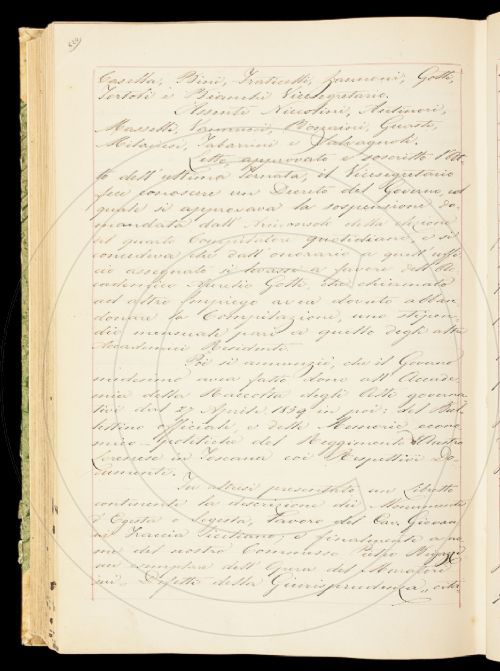 Casella, Bini, Fraticelli, Zannoni, Gotti,
Tortoli e Bianchi Vicesegretario.
Assenti Niccolini, Antinori,
Masselli, Vannucci, Bonaini, Guasti,
Milanesi, Tabarrini e Salvagnoli.
Letto, approvato e soscritto l'At-
to dell'ultima Tornata, il Vicesegretario
fece conoscere un Decreto del Governo, col
quale si approvava la sospensione do-
mandata dall'Arciconsolo della elezione
del quarto Compilatore quotidiano, e si
concedeva che dall'onorario a quell'uffi-
cio assegnato si levasse a favore dell'Ac-
cademico Aurelio Gotti, che chiamato
ad altro Impiego avea dovuto abban-
donare la Compilazione, uno stipen-
dio mensuale pari a quello degli altri
Accademici Residenti.
Poi si annunziò, che il Governo
medesimo avea fatto dono all'Accade-
mia della Raccolta degli Atti governa-
tivi dal 27 Aprile 1859 in poi: del Bul-
lettino officiale, e delle Memorie econo-
mico-politiche del Reggimento Austro
Lorenese in Toscana coi Respettivi Do-
cumenti.
Fu altresì presentato un Libretto
contenente la descrizione dei Monumenti
d'Egesta o Segesta, lavoro del Cav. Giovan-
ni Fraccia Siciliano, e finalmente a no-
me del nostro Commesso Pietro
un esemplare dell'Opera del Muratori
"Difetti della Giurisprudenza"